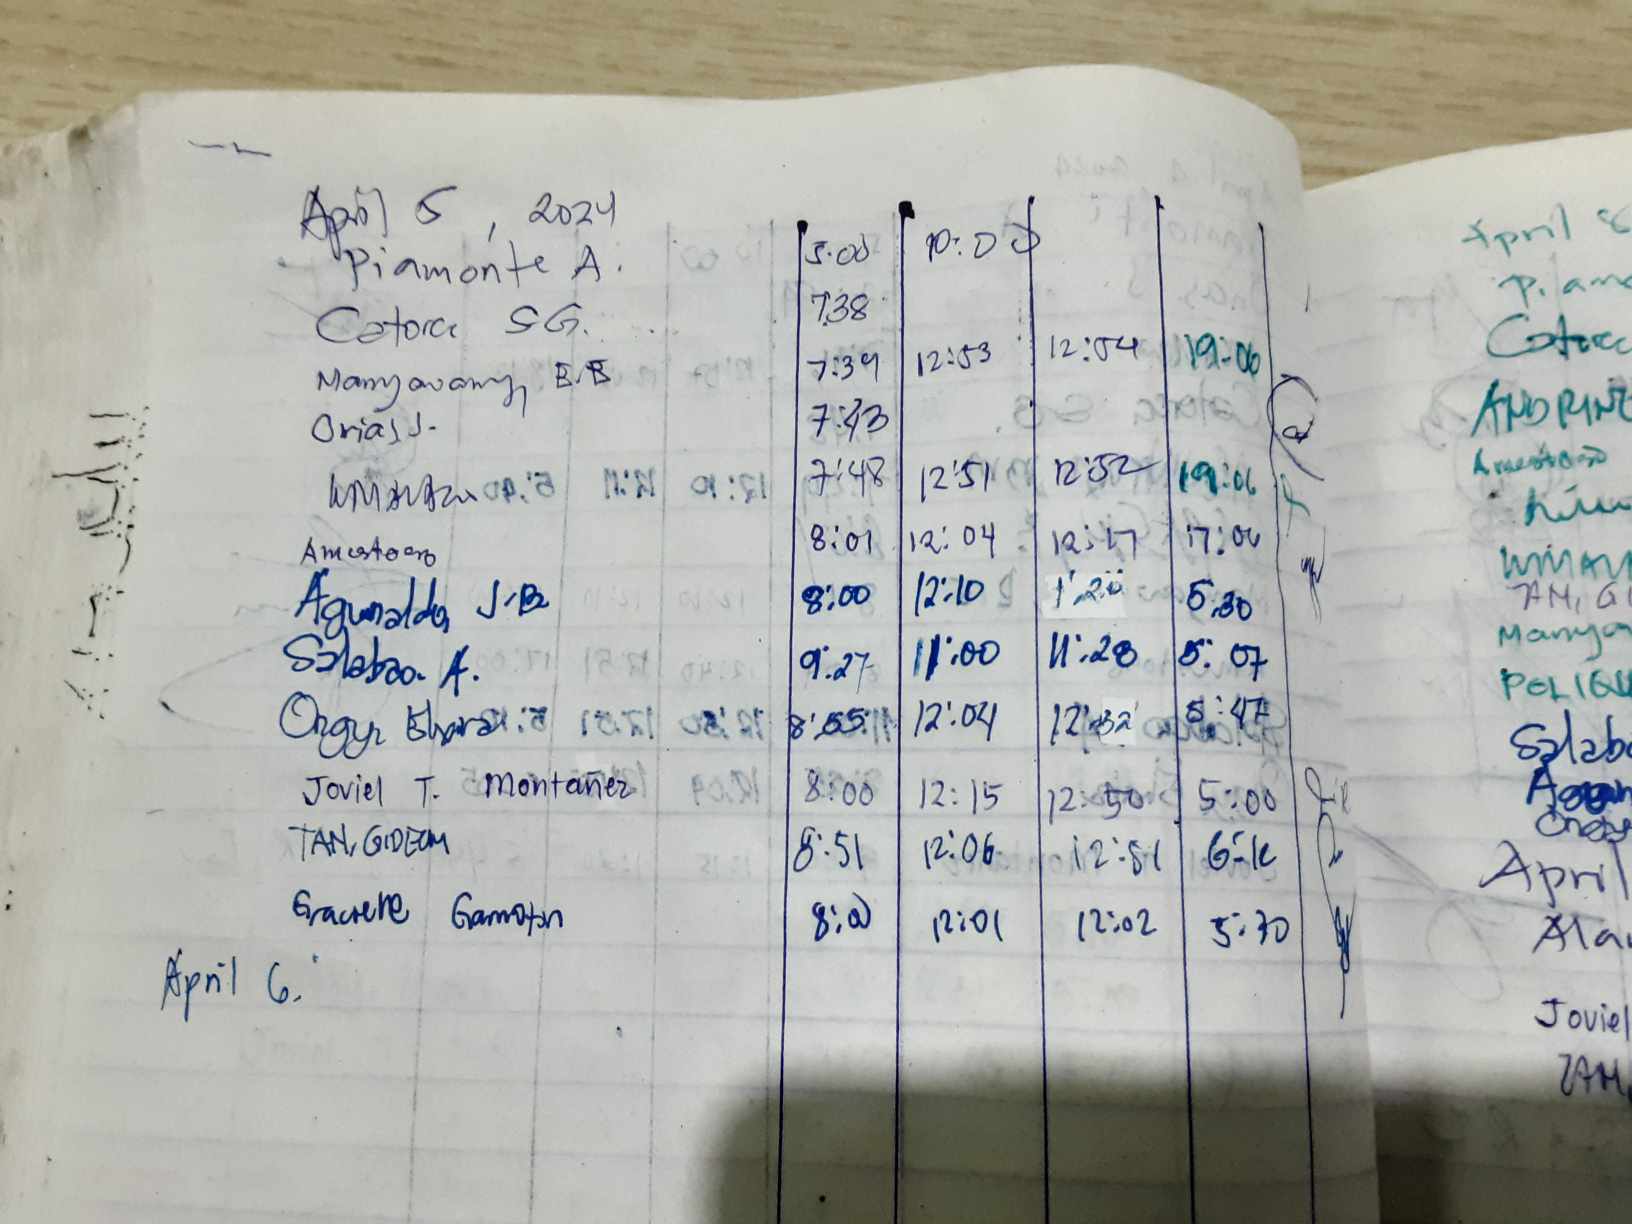 April 5, 2024
Piamonte A. 5:00 10:00
Catora SG. 7:38
Manyavang, B.B 7:39 12:53 12:54 19:06
Orias J. 7:43
7:48 12:51 12:52 19:06
Amestoso 8:01 12:04 12:17 17:06
Agunaldo, J.B 8:00 12:10 1:20 5:30
Salabao. A. 9:27 11:00 11:28 5:07
8:55 12:04 12:32 5:47
Joviel T. Montañez 8:00 12:15 12:50 5:00
TAN, GIDEON 8:51 12:06 12:51
Gracielle Gamotin 8:00 12:01 12:02 5:30
April 6.
April 8
Piamo
Catora
ANDRINE
Amestoso
WMAV
TAN, GI
Manya
POLIQU
Salaba
April
Ala
Joviel
TAN,